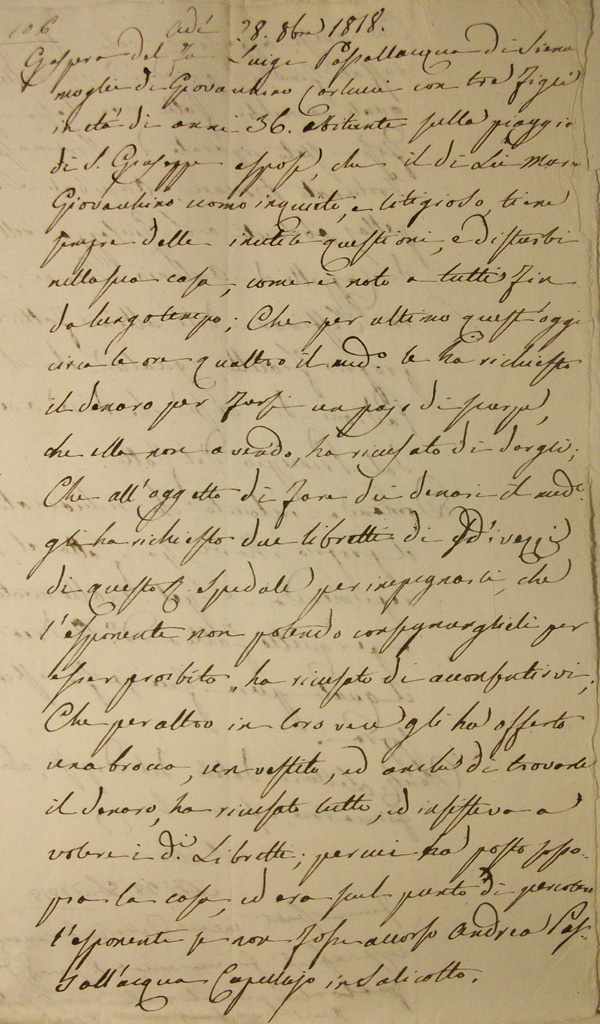 106
Adì 28. 8bre 1818.
Gaspera del fu Luigi Passallacqua di Siena
moglie di Giovacchino Carlucci con tre figli
in età di anni 36. abitante sulla piaggia
di S. Giuseppe espose, che il di Lei Mari
Giovacchino uomo inquieto, e litigioso, tiene
sempre delle inutili questioni, e disturbi
nella sua casa, come è noto a tutti fin
da lungo tempo; Che per ultimo quest'oggi
circa le ore quattro il med.º le ha richiesto
il denaro per farsi un pajo di scarpe,
che ella non avendo, ha ricusato di dargli;
Che all'oggetto di fare dei denari il med.º
gli ha richiesto due libretti di
di questo R. Spedale per impegnarli, che
l'esponente non potendo consegnarglieli per
esser proibito, ha ricusato di acconsentirvi;
Che peraltro in loro vece gli ha offerto
una brocca, un vestito, ed anche di trovare
il denaro, ha ricusato tutto, ed insisteva a
volere i d.i Libretti; per cui ha posto sosso-
pra la casa, ed era sul punto di percotere
l'esponente se non fosse accorso Andrea Pas-
sall'acqua Capellajo in Salicotto.